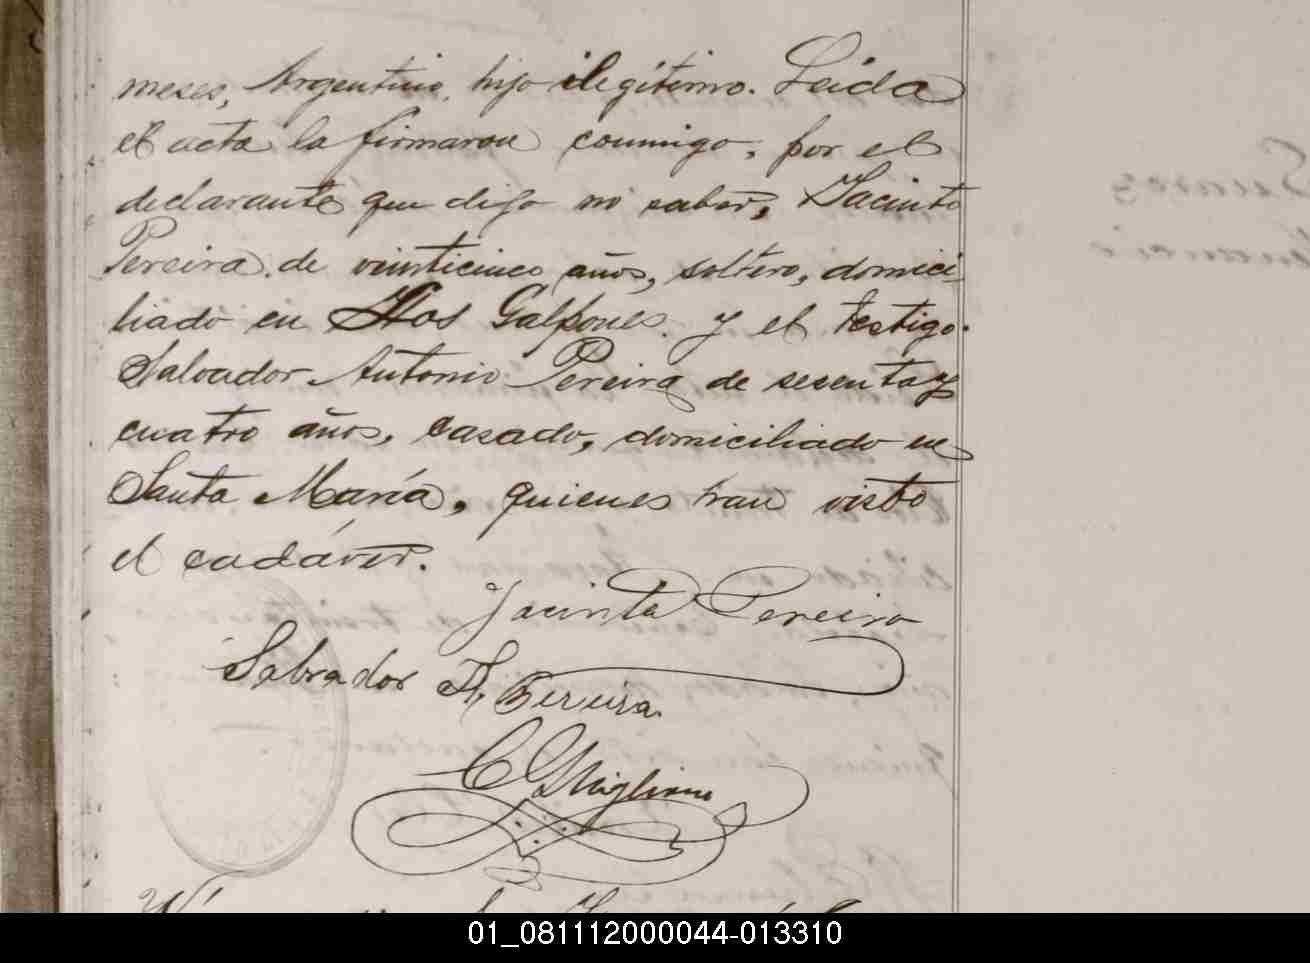 meses, Argentino, hijo ilegítimo. Leida
el acta la firmaron conmigo, por el
declarante que dijo no saber, Jacinto
Pereira de veinticinco años, soltero, domici-
liado en Los Galpones y el testigo
Salvador Antonio Pereira de sesenta y
cuatro años, casado, domiciliado en
Santa María, quienes han visto
el cadáver.
Jacinto Pereira
Salvador A, Pereira
C Ghigliani
01_081112000044-013310